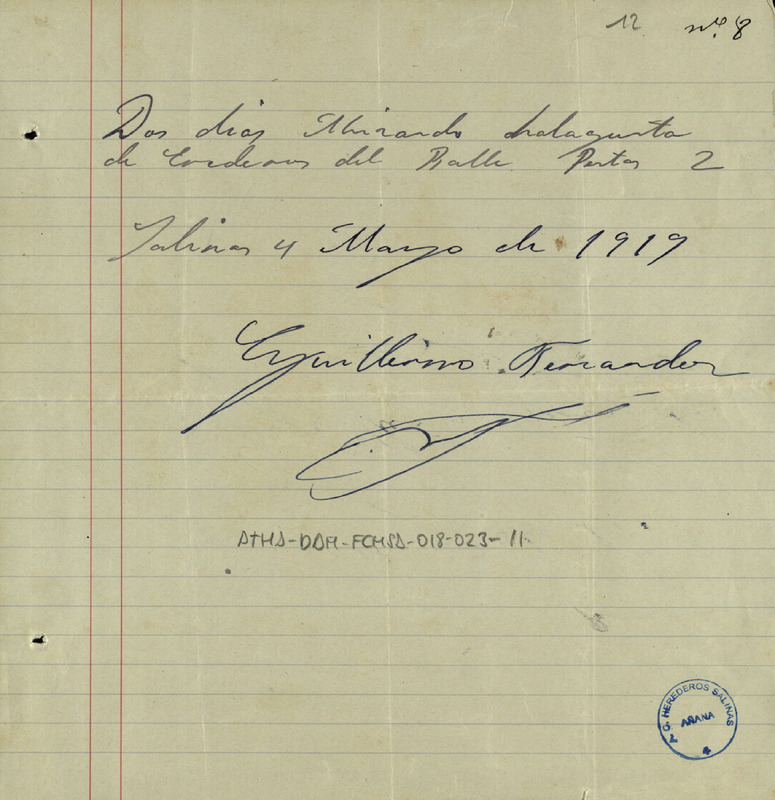 12 nº 8
Dos dias Mirando
de Erederos del Balle Pestas 2
Salinas 4 Mayo de 1919
Guillermo Fernandez
ATHA-DAH-FCHSA-018-023-11
C. HEREDEROS SALINAS
AÑANA
4